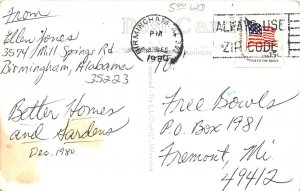 From
Ellen Jones
3574 Mill Springs Rd
Birmingham, Alabama
35223
Better Homes
and Gardens
Dec. 1980
BIRMINGHAM
PM
1980
ALWAYS USE
ZIP CODE
To
Free Bowls
P.O. Box 1981
Fremont, Mi.
49412